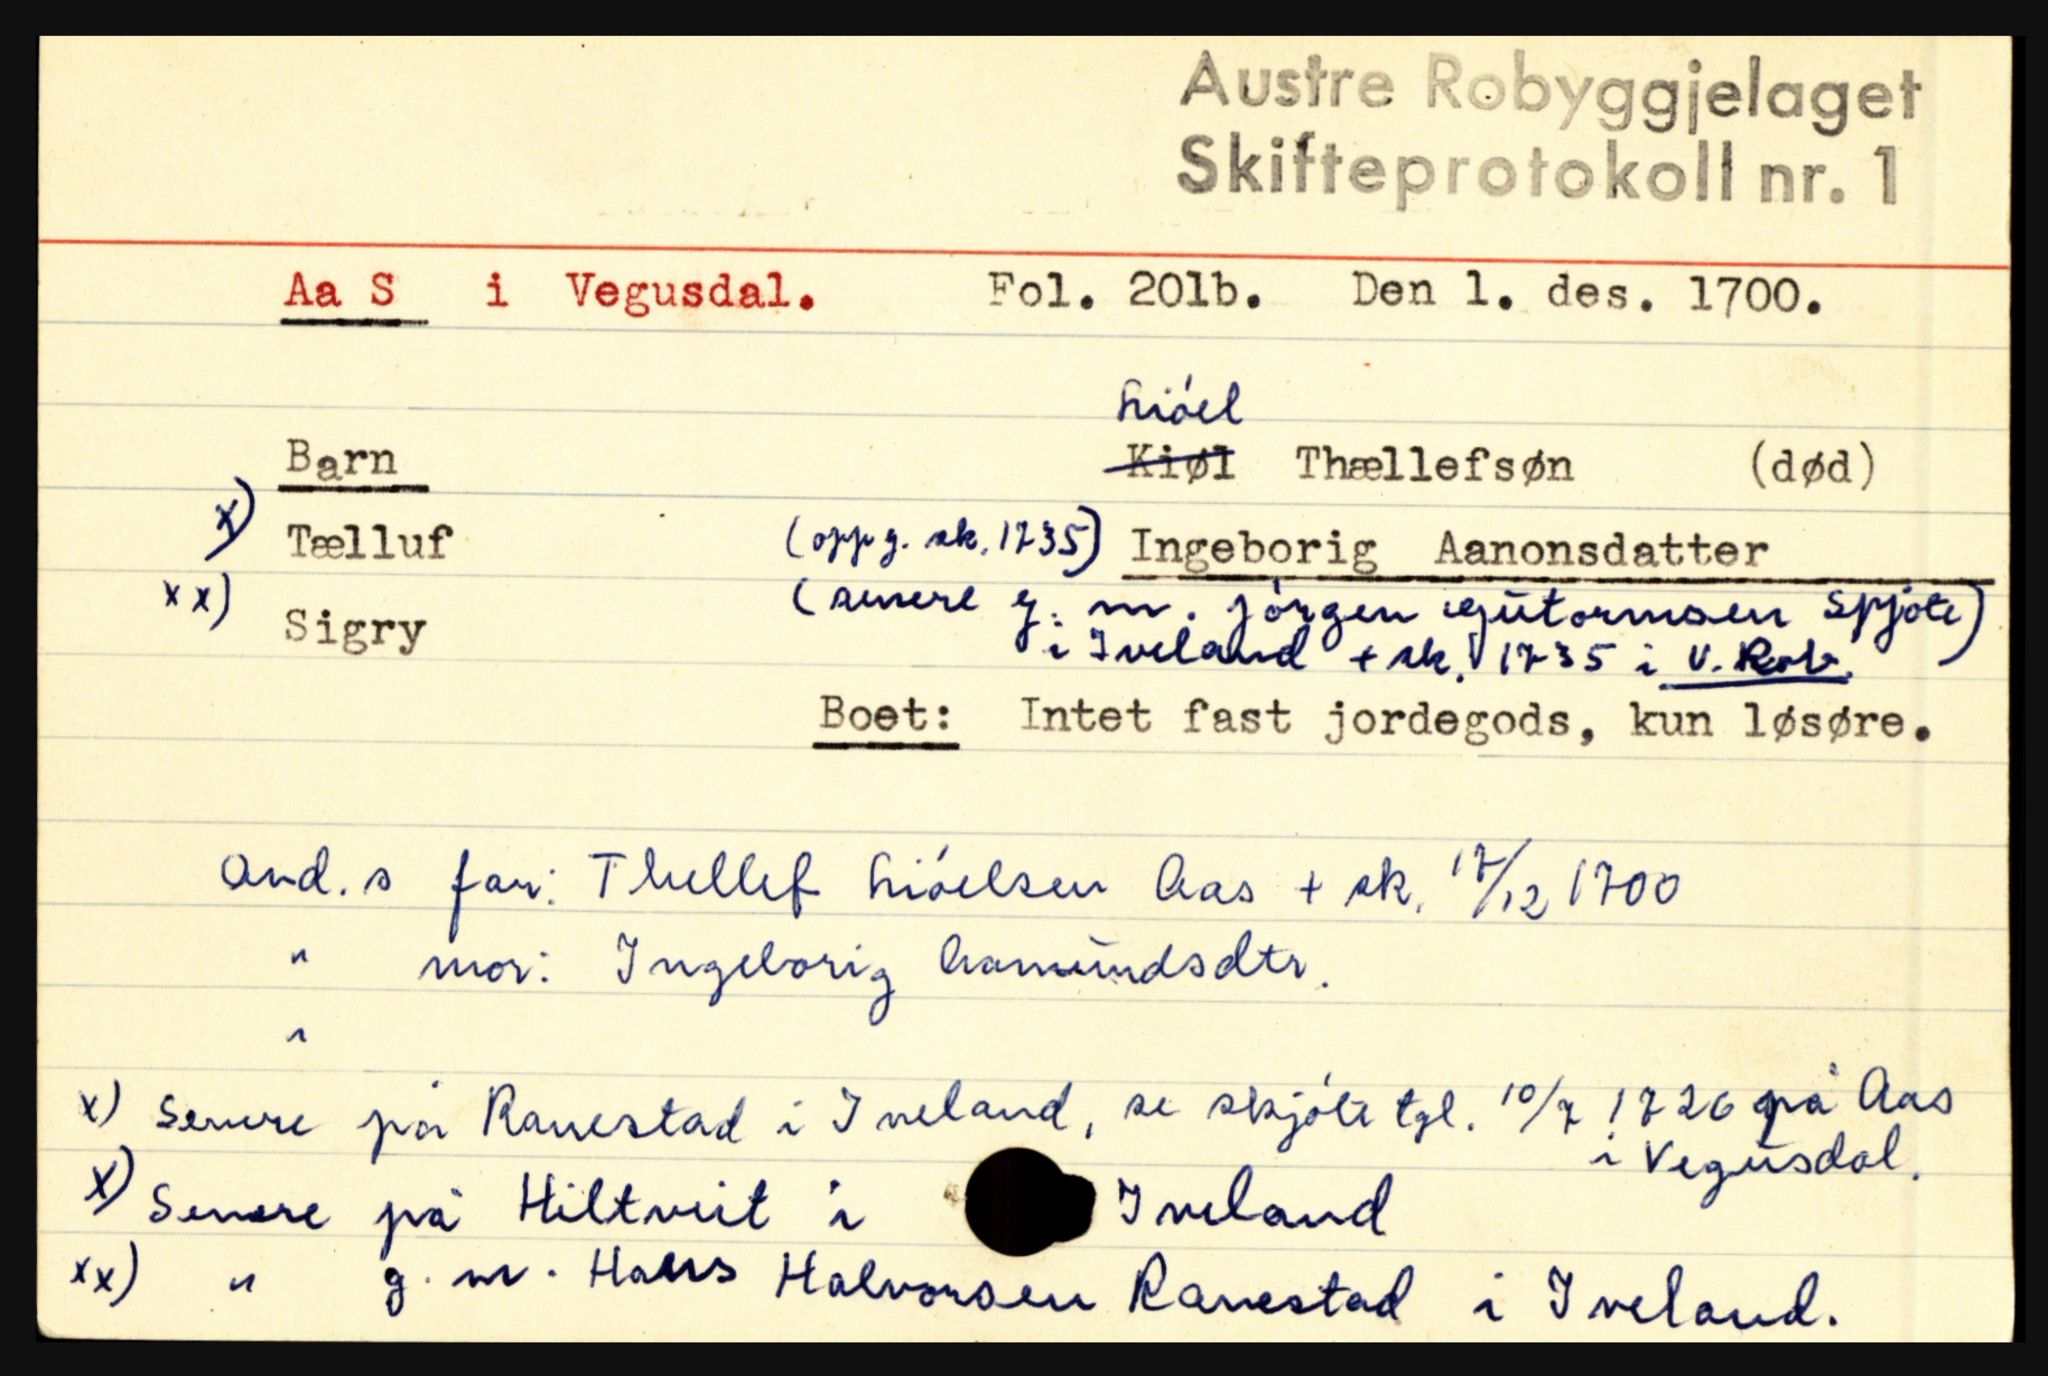 Austre Robyggjelaget
Skifteprotokoll nr. 1
Aa S i Vegusdal. Fol. 201b. Den 1. des. 1700.
Liòel
Barn Kiøl Thællefsøn (død)
x) Tælluf (oppg. sk. 1735) Ingeborig Aanonsdatter
xx) Sigry (senere g. m. Jòrgen Gutormsen Spjote)
i Iveland + sk. 1735 i V. Rob.
Boet: Intet fast jordegods, kun løsøre.
And. s far: Thellef Liòelsen Aas + sk. 17/12 1700
" mor: Ingeborig Aamundsdtr.
"
x) Senere på Ranestad i Iveland, se skjóte tgl. 10/7 1726 på Aas
i Vegusdal.
x) Senere på Hiltveit i Iveland
xx) " g. m. Hans Halvorsen Ranestad i Iveland.